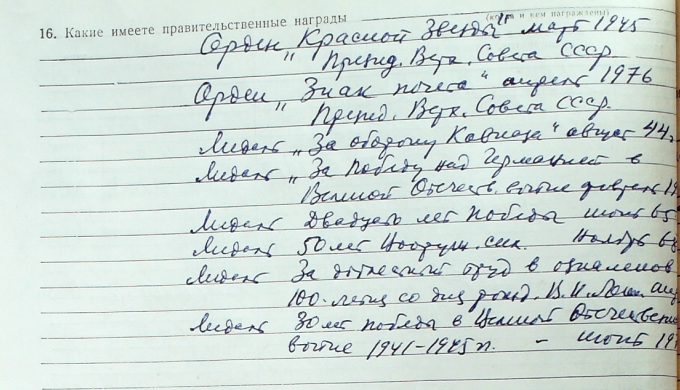 16. Какие имеете правительственные награды
(кем и кем награждены)
Орден „Красной Звезды" март 1945
Презид. Верх. Совета СССР
Орден „Знак почета" апрель 1976
Презид. Верх. Совета СССР.
Медаль „За оборону Кавказа" август 44г
Медаль „За Победу над Германией в
Великой Отечеств. войне февраль 19
Медаль Двадцать лет победы июнь 65
Медаль 50 лет Вооруж. сил. Ноябрь 68
Медаль За доблестный труд в ознаменов
100-летия со дня рожд. В. И. Ленин. апр
Медаль 30 лет победы в Великой Отечественно
войне 1941-1945 гг. - июнь 197